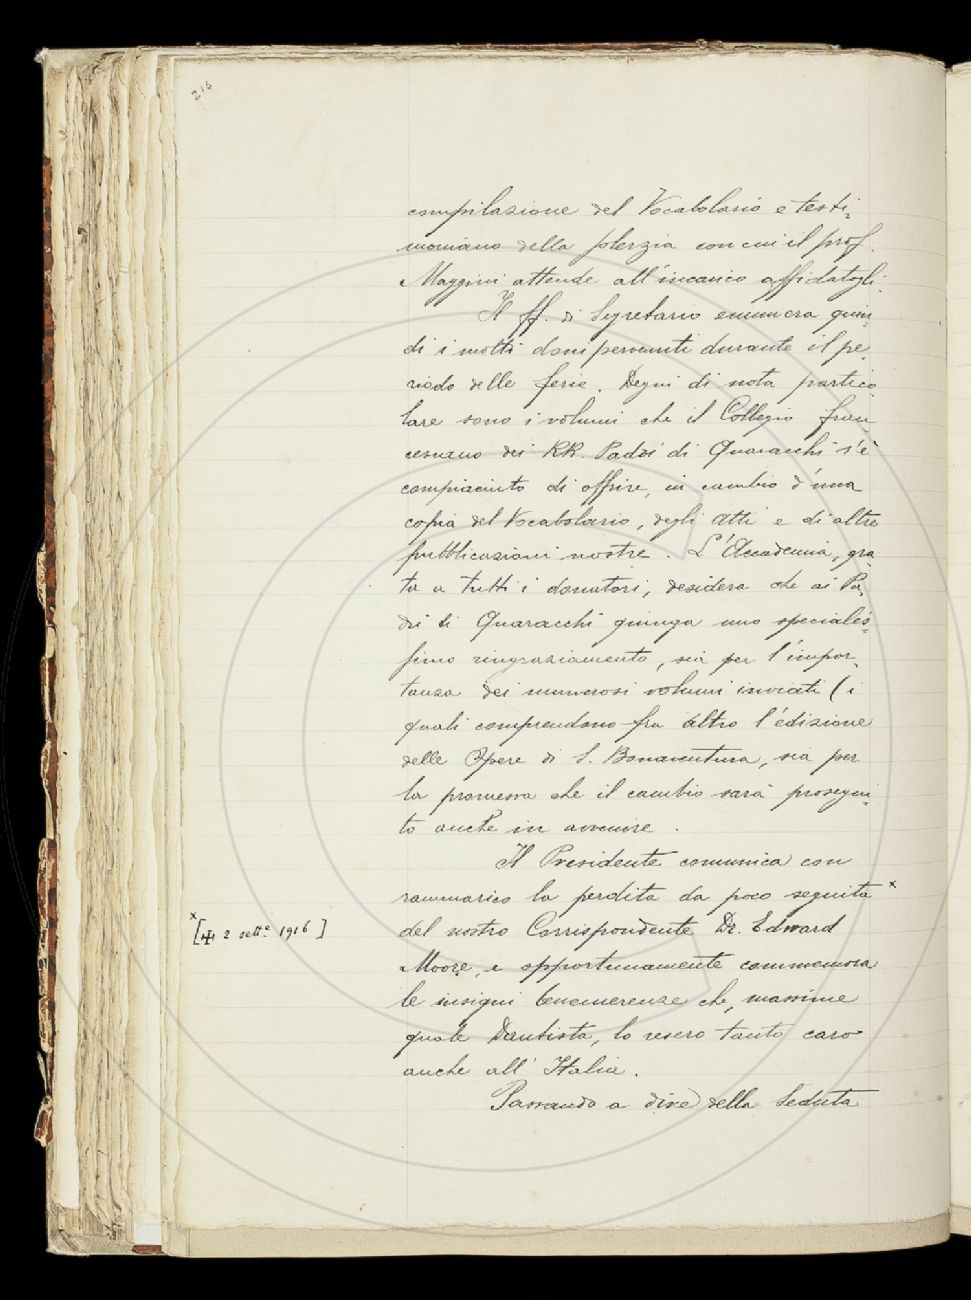 216
compilazione del Vocabolario e testi-
moniano della solerzia con cui il prof.
Maggini attende all'incarico affidatogli.
Il ff. di Segretario enumera quin-
di i molti doni pervenuti durante il pe-
riodo delle ferie. Degni di nota partico-
lare sono i volumi che il Collegio fran-
cescano dei RR. Padri di Quaracchi s'è
compiaciuto di offrire, in cambio d'una
copia del Vocabolario, degli Atti e di altre
pubblicazioni nostre. L'Accademia, gra-
ta a tutti i donatori, desidera che ai Pa-
dri di Quaracchi giunga uno specialis-
simo ringraziamento, sia per l'impor-
tanza dei numerosi volumi inviati (i
quali comprendono fra altro l'edizione
delle Opere di S. Bonaventura, sia per
la promessa che il cambio sarà prosegui-
to anche in avvenire.
Il Presidente comunica con
rammarico la perdita da poco seguita x
x
[✠ 2 sett.e 1916]
del nostro Corrispondente Dr. Edward
Moore, e opportunamente commemora
le insigni benemerenze che, massime
quale Dantista, lo resero tanto caro
anche all'Italia.
Passando a dire della Seduta